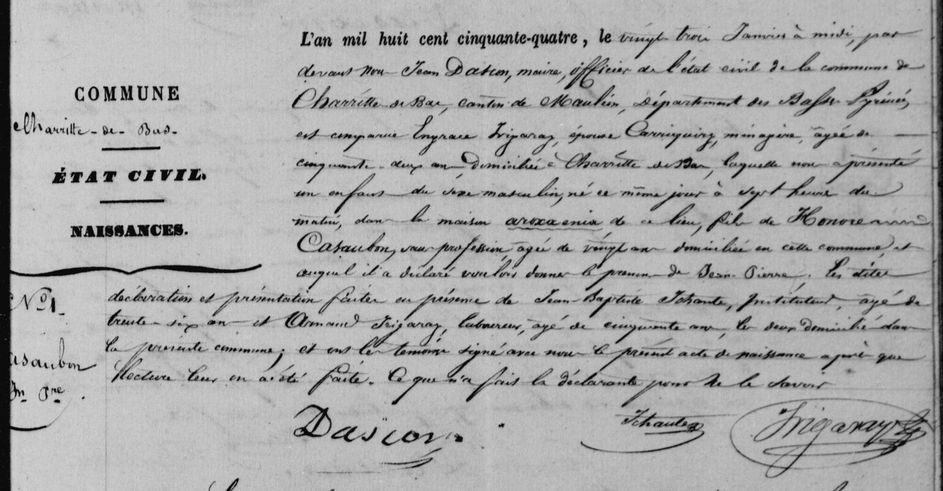 L'an mil huit cent cinquante-quatre, le vingt trois Janvier à midi, par
devant nous Jean Dascon, maire, officier de l'état civil de la commune de
Charritte de Bas, canton de Mauléon, Département des Basses Pyrénées
est comparue Engrace Irigaray, épouse Carriquiry, ménagère, âgée de
cinquante deux ans, domiciliée à Charritte de Bas, laquelle nous a présenté
un enfant du sexe masculin, né ce même jour à sept heures du
matin, dans la maison aroxaenia de ce lieu, fils de Honoré
Casaubon, sans profession, agée de vingt ans domiciliée en cette commune, et
auquel il a déclaré vouloir donner le prénom de Jean Pierre. Les dites
déclaration et présentation faites en présence de Jean Baptiste Ichante, Instituteur, âgé de
trente six ans et Armand Irigaray, laboureur, âgé de cinquante ans, les deux domiciliés dans
la présente commune; et ont les témoins signé avec nous le présent acte de naissance après que
lecture leur en a été faite. Ce que n'a fait la déclarante pour ne le savoir
COMMUNE
Charritte-de-Bas
ÉTAT CIVIL.
NAISSANCES.
N° 1
asaubon
Jn Pre
Dascon
Ichante
Irigaray